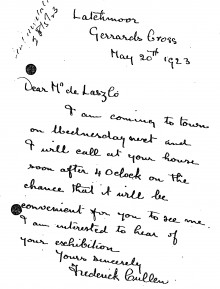 Latchmoor
Gerrards Cross
May 20th 1923
Dear Mr de Laszló
I am coming to town
on Wednesday next and
I will call at your house
soon after 4 O'clock on the
chance that it will be
convenient for you to see me.
I am interested to hear of
your exhibition
Yours sincerely
Frederick Cullen